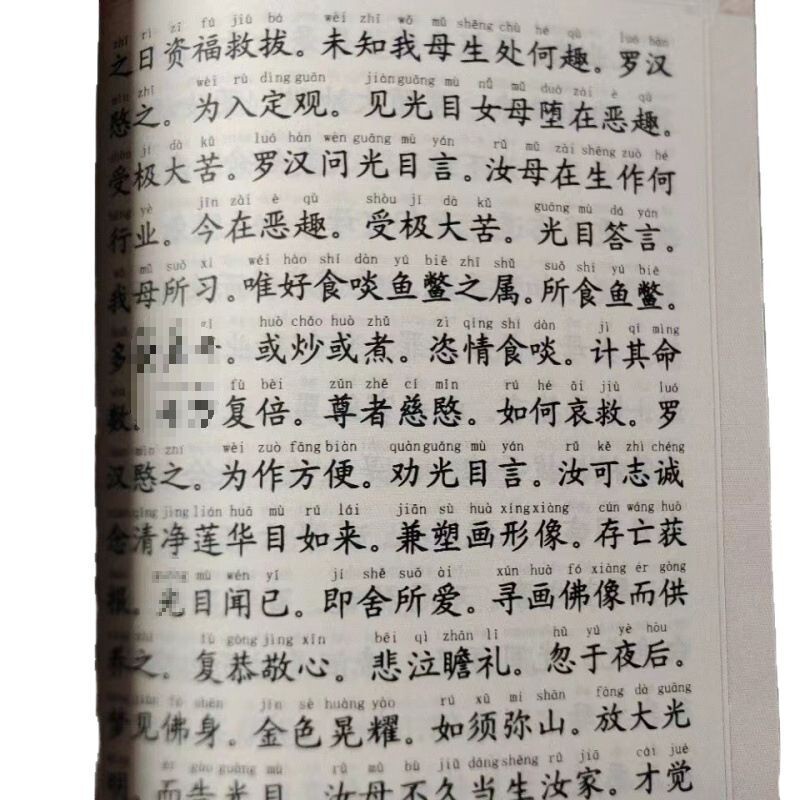 zhī rì zī fú jiù bá wèi zhī wǒ mǔ shēng chù hé qù luó hàn
之日资福救拔。未知我母生处何趣。罗汉
mǐn zhī wèi rù dìng guān jiàn guāng mù nǚ mǔ duò zài è qù
愍之。为入定观。见光目女母堕在恶趣。
shòu jí dà kǔ luó hàn wèn guāng mù yán rǔ mǔ zài shēng zuò hé
受极大苦。罗汉问光目言。汝母在生作何
háng yè jīn zài è qù shòu jí dà kǔ guāng mù dá yán
行业。今在恶趣。受极大苦。光目答言。
wǒ mǔ suǒ xí wéi hào shí dàn yú biē zhī shǔ suǒ shí yú biē
我母所习。唯好食啖鱼鳖之属。所食鱼鳖。
huò chǎo huò zhǔ zì qíng shí dàn jì qí mìng
多 。或炒或煮。恣情食啖。计其命
fù bèi zūn zhě cí mǐn rú hé āi jiù luó
数。 复倍。尊者慈愍。如何哀救。罗
hàn mǐn zhī wèi zuò fāng biàn quàn guāng mù yán rǔ kě zhì chéng
汉愍之。为作方便。劝光目言。汝可志诚
qīng jìng lián huā mù rú lái jiān sù huà xíng xiàng cún wáng huò
念清净莲华目如来。兼塑画形像。存亡获
mù wén yǐ jí shě suǒ ài xún huà fó xiàng ér gòng
报。光目闻已。即舍所爱。寻画佛像而供
zhī fù gōng jìng xīn bēi qì zhān lǐ hū yú yè hòu
养之。复恭敬心。悲泣瞻礼。忽于夜后。
jiàn fó shēn jīn sè huàng yào rú xū mí shān fàng dà guāng
梦见佛身。金色晃耀。如须弥山。放大光
gào guāng mù rǔ mǔ bù jiǔ dāng shēng rǔ jiā cái jué
明。而告光目。汝母不久当生汝家。才觉